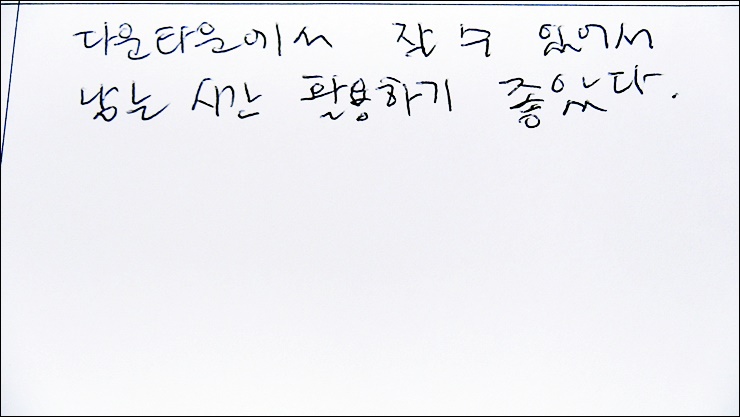 다운타운에서 잘 수 있어서
남는 시간 활용하기 좋았다.